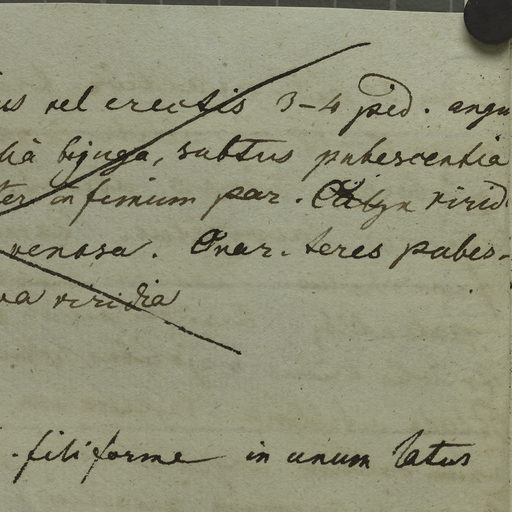 us vel erectis 3-4 ped. angu
lia bijuga, subtus pubescentia
ter infimum par. Calyx virid
venosa. Ovar. teres pubes-
va viridia
. filiforme in unum latus